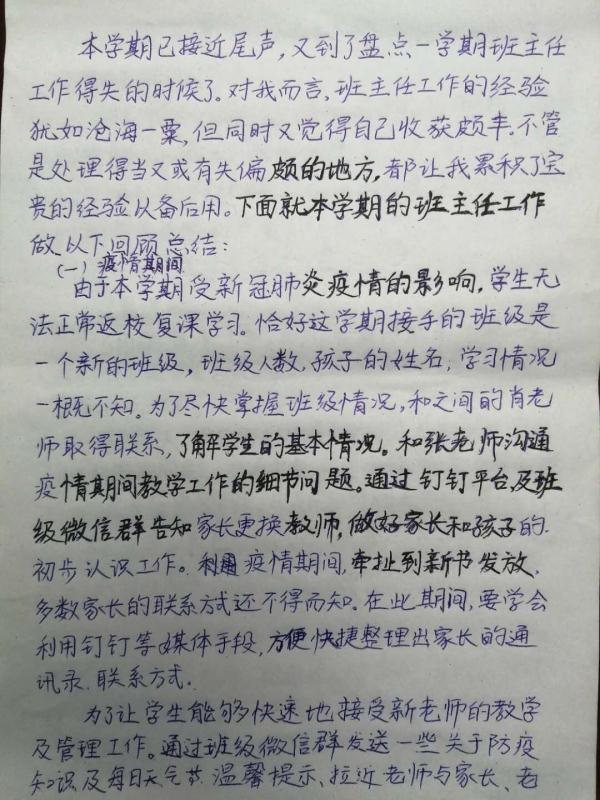 本学期已接近尾声，又到了盘点一学期班主任
工作得失的时候了。对我而言，班主任工作的经验
犹如沧海一粟，但同时又觉得自己收获颇丰。不管
是处理得当又或有失偏颇的地方，都让我累积了宝
贵的经验以备后用。下面就本学期的班主任工作
做以下回顾总结：
（一）疫情期间
由于本学期受新冠肺炎疫情的影响，学生无
法正常返校复课学习。恰好这学期接手的班级是
一个新的班级，班级人数，孩子的姓名，学习情况
一概不知。为了尽快掌握班级情况，和之间的肖老
师取得联系，了解学生的基本情况。和张老师沟通
疫情期间教学工作的细节问题。通过钉钉平台及班
级微信群告知家长更换教师，做好家长和孩子的
初步认识工作。利用疫情期间，牵扯到新书发放，
多数家长的联系方式还不得而知。在此期间，要学会
利用钉钉等媒体手段，方便快捷整理出家长的通
讯录、联系方式.
为了让学生能够快速地接受新老师的教学
及管理工作。通过班级微信群发送一些关于防疫
知识及每日天气 温馨提示、拉近老师与家长、老